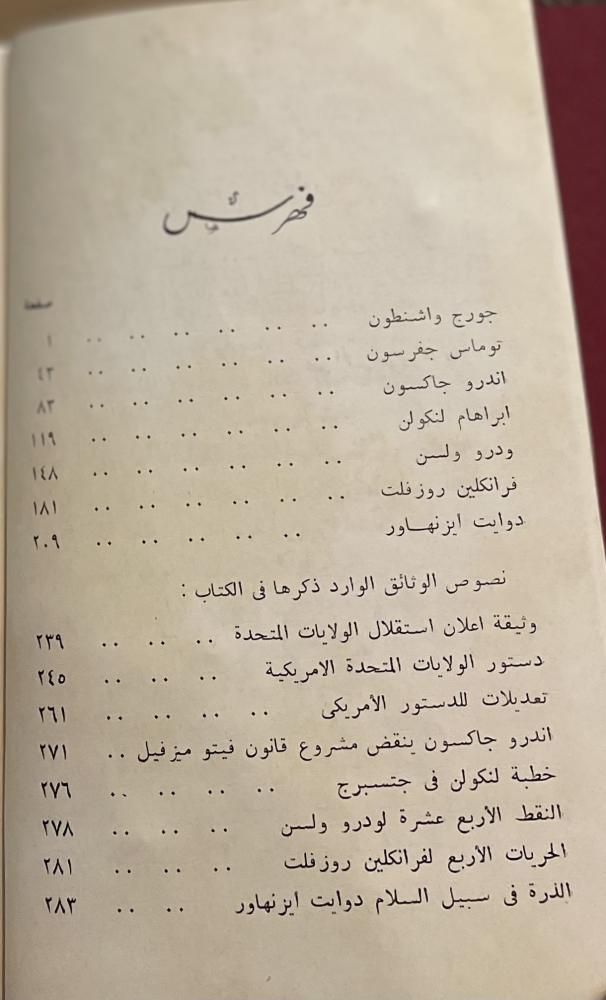 فهرس
صفحة
جورج واشنطون .. .. .. .. .. .. ١
توماس جفرسون .. .. .. .. .. .. ٤٣
اندرو جاكسون .. .. .. .. .. .. ٨٣
ابراهام لنكولن .. .. .. .. .. .. ١١٩
ودرو ولسن .. .. .. .. .. .. ١٤٨
فرانكلين روزفلت .. .. .. .. .. .. ١٨١
دوايت ايزنهاور .. .. .. .. .. ٢٠٩
نصوص الوثائق الوارد ذكرها فى الكتاب :
وثيقة اعلان استقلال الولايات المتحدة .. .. .. ٢٣٩
دستور الولايات المتحدة الامريكية .. .. .. ٢٤٥
تعديلات للدستور الأمريكى .. .. .. .. ٢٦١
اندرو جاكسون ينقض مشروع قانون فيتو ميزفيل .. ٢٧١
خطبة لنكولن فى جتسبرج .. .. .. .. ٢٧٦
النقط الأربع عشرة لودرو ولسن .. .. .. ٢٧٨
الحريات الأربع لفرانكلين روزفلت .. .. .. ٢٨١
الذرة فى سبيل السلام دوايت ايزنهاور .. .. ٢٨٣